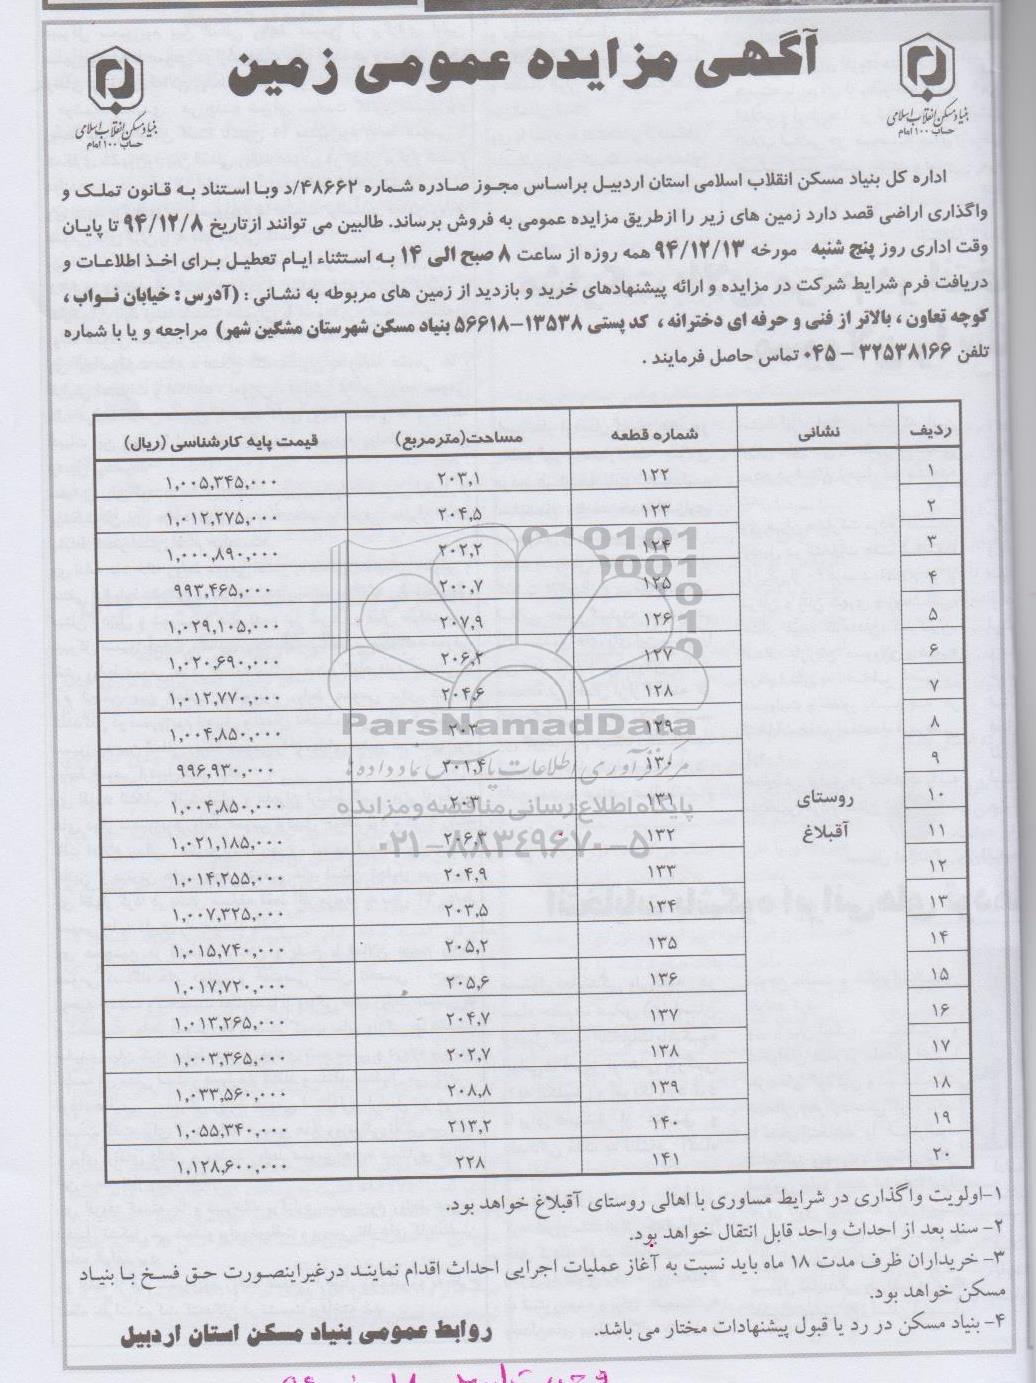 آگهی مزایده عمومی زمین
بنیاد مسکن انقلاب اسلامی
حساب ۱۰۰ امام
بنیاد مسکن انقلاب اسلامی
حساب ۱۰۰ امام
اداره کل بنیاد مسکن انقلاب اسلامی استان اردبیل براساس مجوز صادره شماره ۴۸۶۶۲/د وبا استناد به قانون تملک و
واگذاری اراضی قصد دارد زمین های زیر را ازطریق مزایده عمومی به فروش برساند. طالبین می توانند ازتاریخ ۹۴/۱۲/۸ تا پایان
وقت اداری روز پنج شنبه مورخه ۹۴/۱۲/۱۳ همه روزه از ساعت ۸ صبح الی ۱۴ به استثناء ایام تعطیل برای اخذ اطلاعات و
دریافت فرم شرایط شرکت در مزایده و ارائه پیشنهادهای خرید و بازدید از زمین های مربوطه به نشانی : (آدرس : خیابان نواب ،
کوچه تعاون ، بالاتر از فنی و حرفه ای دخترانه ، کد پستی ۱۳۵۳۸-۵۶۶۱۸ بنیاد مسکن شهرستان مشگین شهر) مراجعه و یا با شماره
تلفن ۳۲۵۳۸۱۶۶ – ۰۴۵ تماس حاصل فرمایند .
ردیف نشانی شماره قطعه مساحت(مترمربع) قیمت پایه کارشناسی (ریال)
۱ ۱۲۲ ۲۰۳,۱ ۱,۰۰۵,۳۴۵,۰۰۰
۲ ۱۲۳ ۲۰۴,۵ ۱,۰۱۲,۲۷۵,۰۰۰
۳ ۱۲۴ ۲۰۲,۲ ۱,۰۰۰,۸۹۰,۰۰۰
۴ ۱۲۵ ۲۰۰,۷ ۹۹۳,۴۶۵,۰۰۰
۵ ۱۲۶ ۲۰۷,۹ ۱,۰۲۹,۱۰۵,۰۰۰
۶ ۱۲۷ ۲۰۶,۲ ۱,۰۲۰,۶۹۰,۰۰۰
۷ ۱۲۸ ۲۰۴,۶ ۱,۰۱۲,۷۷۰,۰۰۰
۸ ۱۲۹ ۲۰۳ ۱,۰۰۴,۸۵۰,۰۰۰
۹ ۱۳۰ ۲۰۱,۴ ۹۹۶,۹۳۰,۰۰۰
۱۰ روستای ۱۳۱ ۲۰۳ ۱,۰۰۴,۸۵۰,۰۰۰
۱۱ آقبلاغ ۱۳۲ ۲۰۶,۳ ۱,۰۲۱,۱۸۵,۰۰۰
۱۲ ۱۳۳ ۲۰۴,۹ ۱,۰۱۴,۲۵۵,۰۰۰
۱۳ ۱۳۴ ۲۰۳,۵ ۱,۰۰۷,۳۲۵,۰۰۰
۱۴ ۱۳۵ ۲۰۵,۲ ۱,۰۱۵,۷۴۰,۰۰۰
۱۵ ۱۳۶ ۲۰۵,۶ ۱,۰۱۷,۷۲۰,۰۰۰
۱۶ ۱۳۷ ۲۰۴,۷ ۱,۰۱۳,۲۶۵,۰۰۰
۱۷ ۱۳۸ ۲۰۲,۷ ۱,۰۰۳,۳۶۵,۰۰۰
۱۸ ۱۳۹ ۲۰۸,۸ ۱,۰۳۳,۵۶۰,۰۰۰
۱۹ ۱۴۰ ۲۱۳,۲ ۱,۰۵۵,۳۴۰,۰۰۰
۲۰ ۱۴۱ ۲۲۸ ۱,۱۲۸,۶۰۰,۰۰۰
ParsNamadData
مرکز فرآوری اطلاعات پارس نماد داده ها
پایگاه اطلاع رسانی مناقصه و مزایده
۰۲۱-۸۸۳۴۹۶۷۰-۵
۱-اولویت واگذاری در شرایط مساوری با اهالی روستای آقبلاغ خواهد بود.
۲- سند بعد از احداث واحد قابل انتقال خواهد بود.
۳- خریداران ظرف مدت ۱۸ ماه باید نسبت به آغاز عملیات اجرایی احداث اقدام نمایند درغیراینصورت حق فسخ با بنیاد
مسکن خواهد بود.
۴- بنیاد مسکن در رد یا قبول پیشنهادات مختار می باشد.
روابط عمومی بنیاد مسکن استان اردبیل